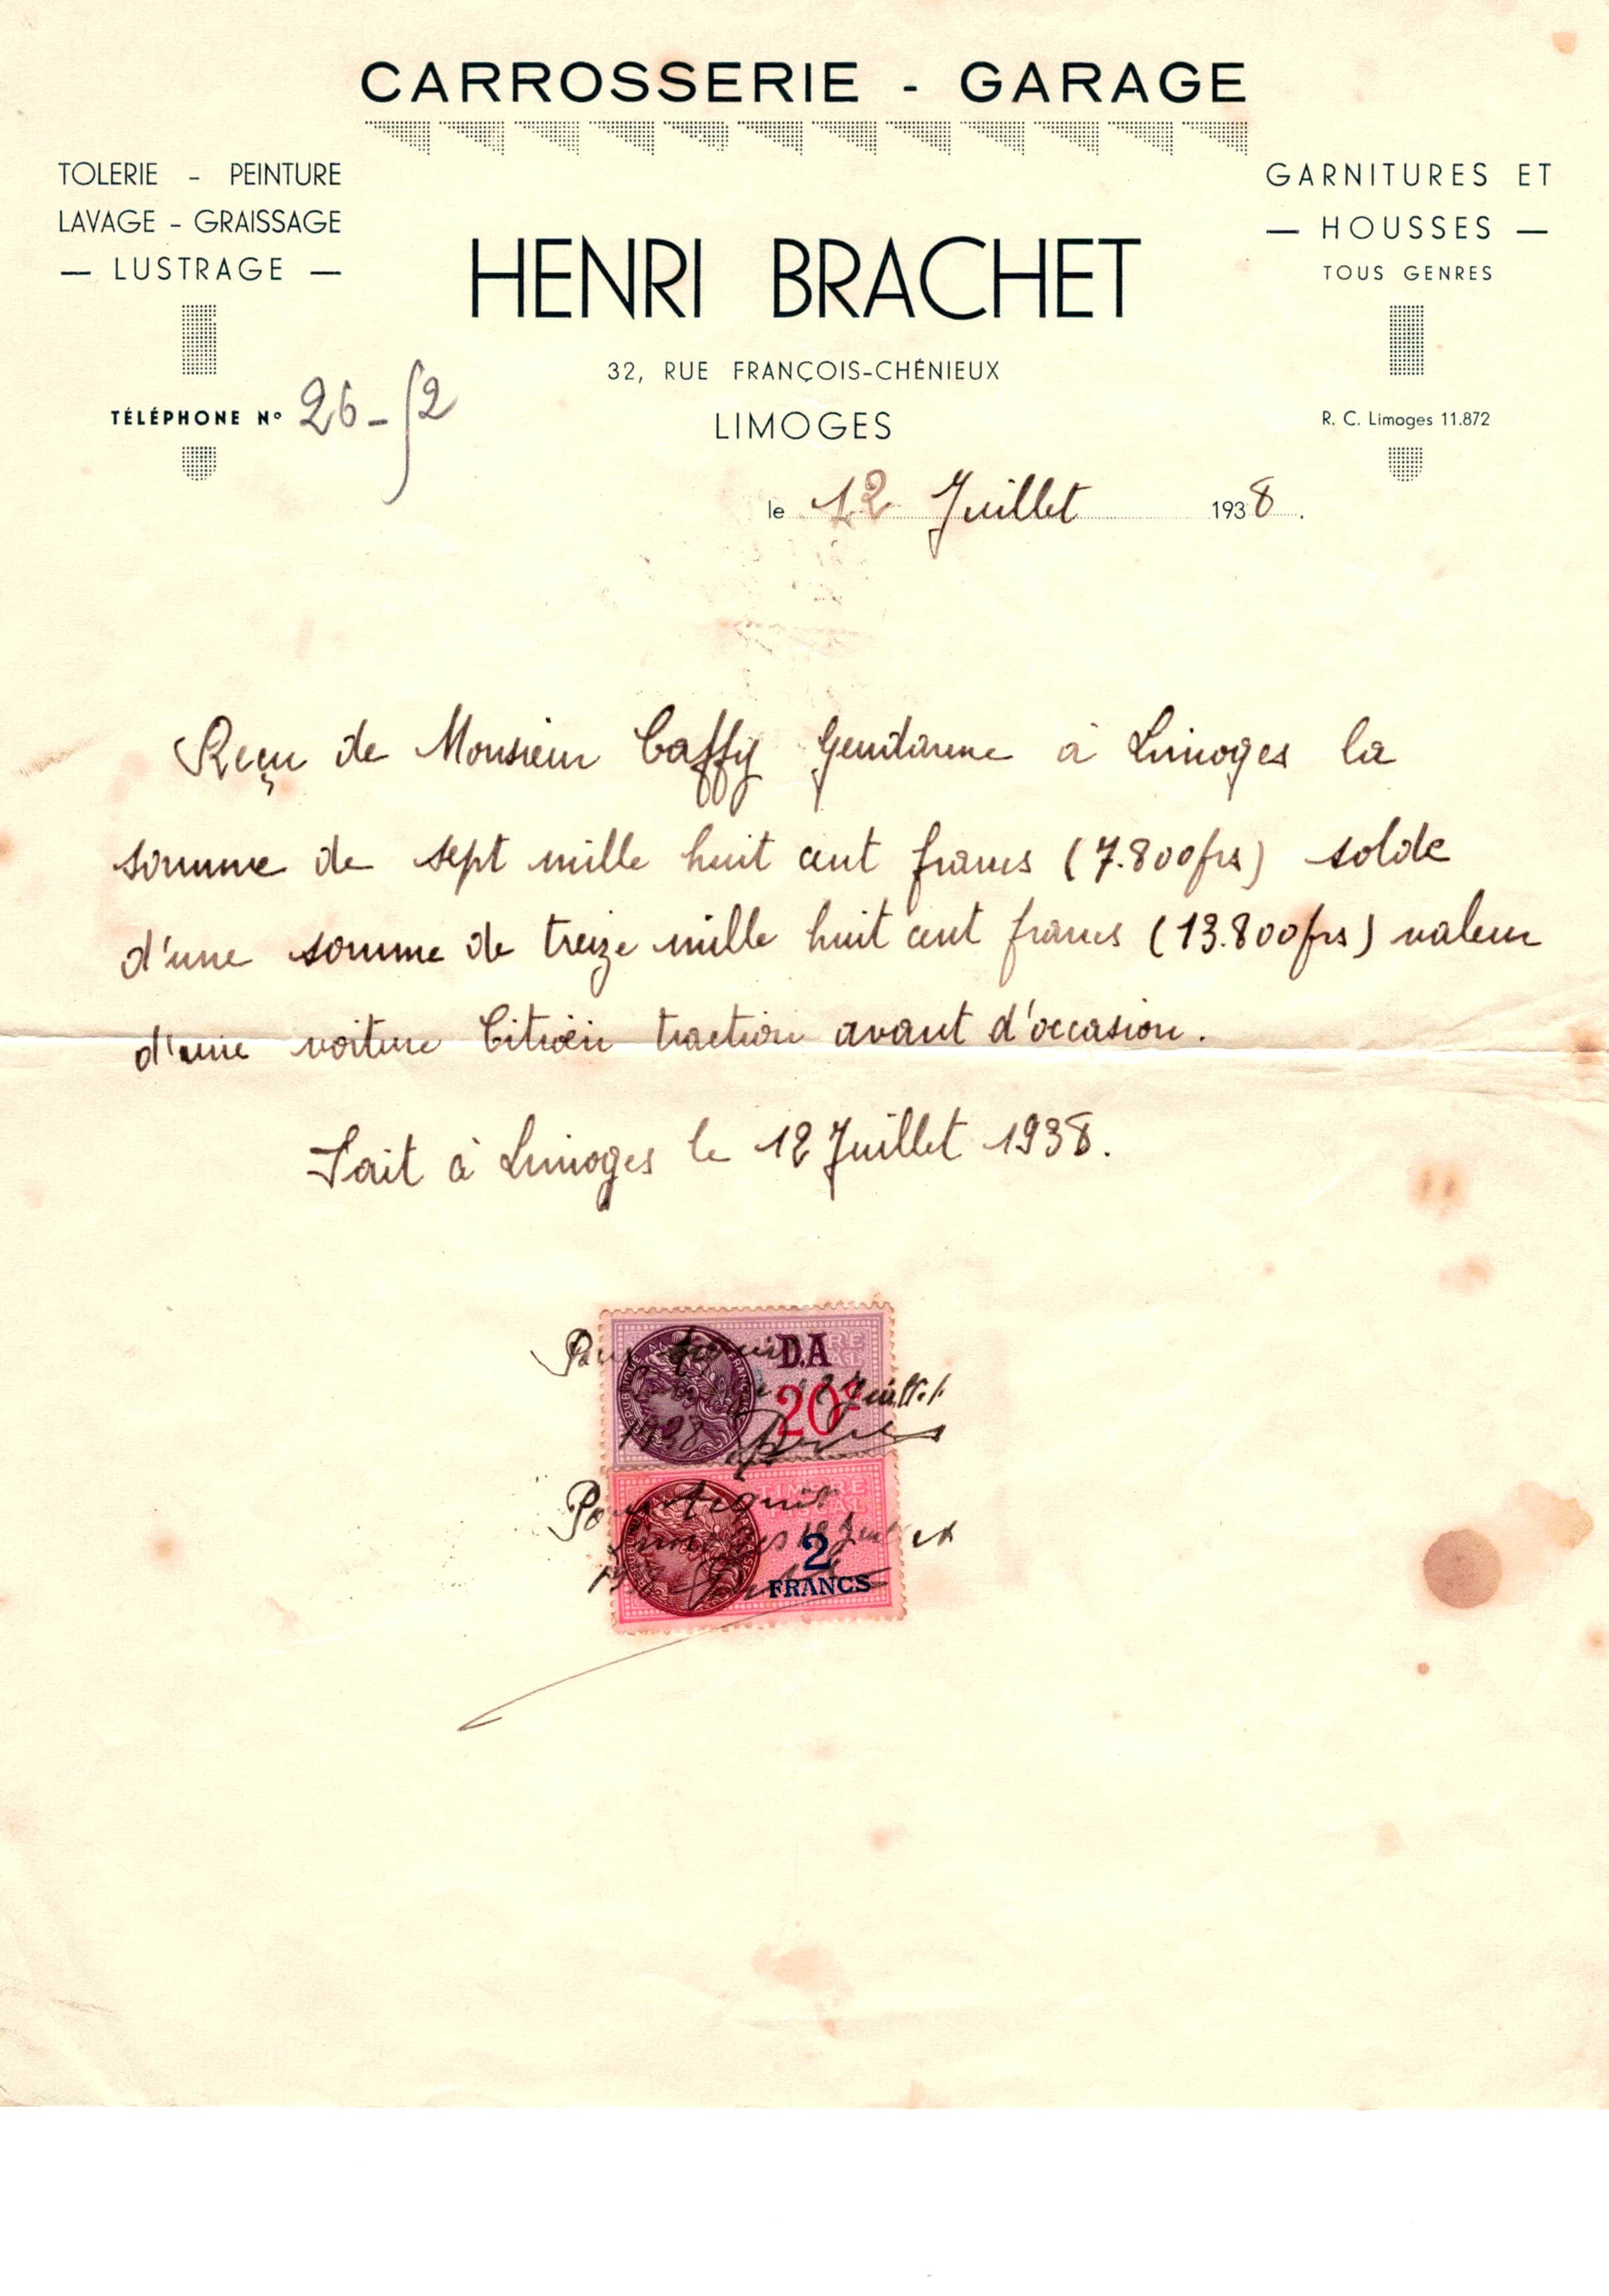 CARROSSERIE - GARAGE
TOLERIE - PEINTURE
LAVAGE - GRAISSAGE
— LUSTRAGE —
GARNITURES ET
— HOUSSES —
TOUS GENRES
HENRI BRACHET
32, RUE FRANÇOIS-CHÉNIEUX
LIMOGES
TÉLÉPHONE N° 26-52
R. C. Limoges 11.872
le 12 Juillet 1938.
Reçu de Monsieur Caffy Gendarme à Limoges la
somme de sept mille huit cent francs (7.800frs) solde
d'une somme de treize mille huit cent francs (13.800frs) valeur
d'une voiture Citroën traction avant d'occasion.
Fait à Limoges le 12 Juillet 1938.
Pour Acquit
D.A
12 Juillet
20
1938
Pour Acquit
TIMBRE
Limoges 12 Juillet
2
FRANCS